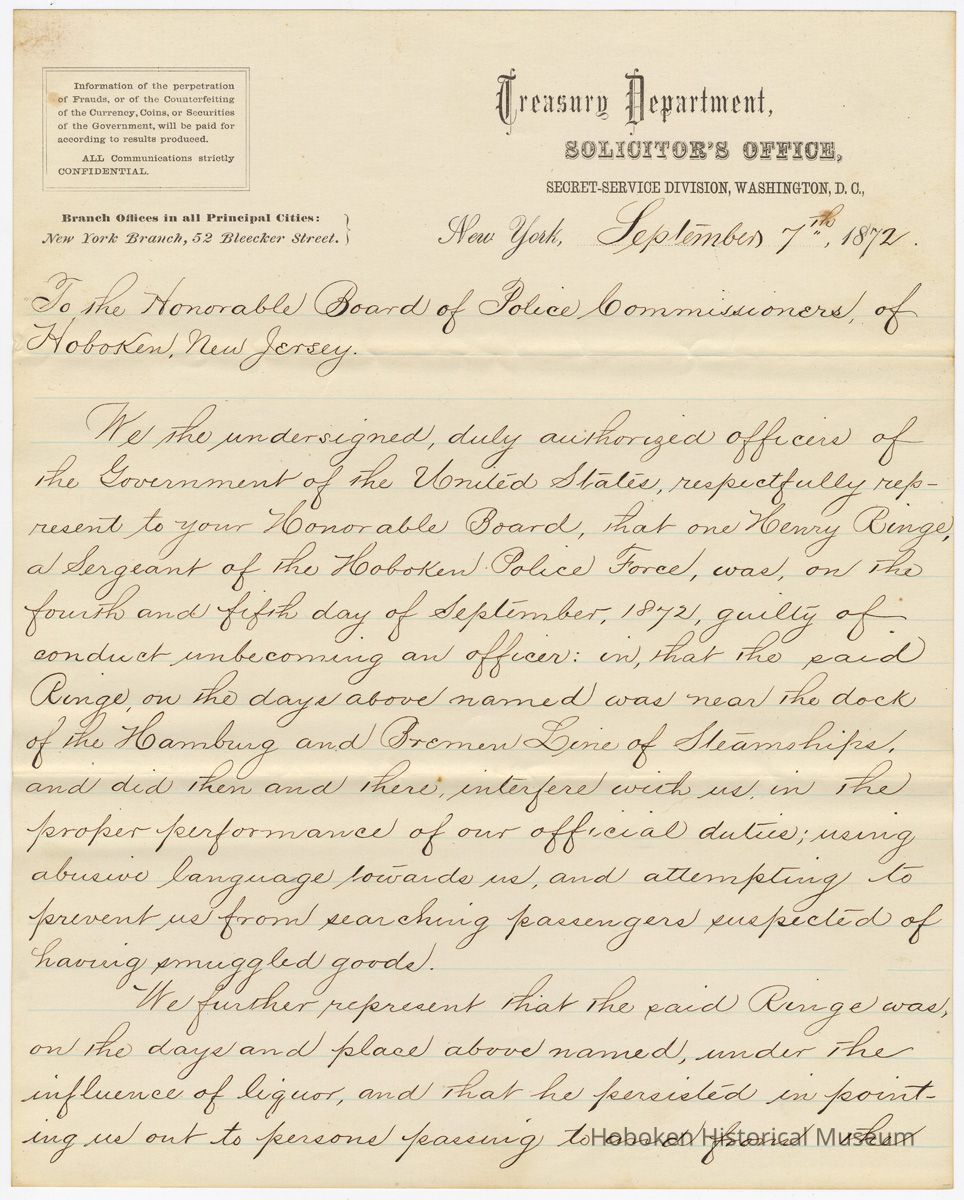 Information of the perpetration
of Frauds, or of the Counterfeiting
of the Currency, Coins, or Securities
of the Government, will be paid for
according to results produced.
ALL Communications strictly
CONFIDENTIAL.
Branch Offices in all Principal Cities:
New York Branch, 52 Bleecker Street.
Treasury Department,
SOLICITOR'S OFFICE,
SECRET-SERVICE DIVISION, WASHINGTON, D. C.,
New York, September 7th, 1872.
To the Honorable Board of Police Commissioners, of
Hoboken, New Jersey.
We the undersigned, duly authorized officers of
the Government of the United States, respectfully rep-
resent to your Honorable Board, that one Henry Ringe,
a Sergeant of the Hoboken Police Force, was, on the
fourth and fifth day of September, 1872, guilty of
conduct unbecoming an officer: in, that the said
Ringe, on the days above named was near the dock
of the Hamburg and Bremen Line of Steamships,
and did then and there, interfere with us, in the
proper performance of our official duties; using
abusive language towards us, and attempting to
prevent us from searching passengers suspected of
having smuggled goods.
We further represent that the said Ringe was,
on the days and place above named, under the
influence of liquor, and that he persisted in point-
ing us out to persons passing to and from the
Hoboken Historical Museum